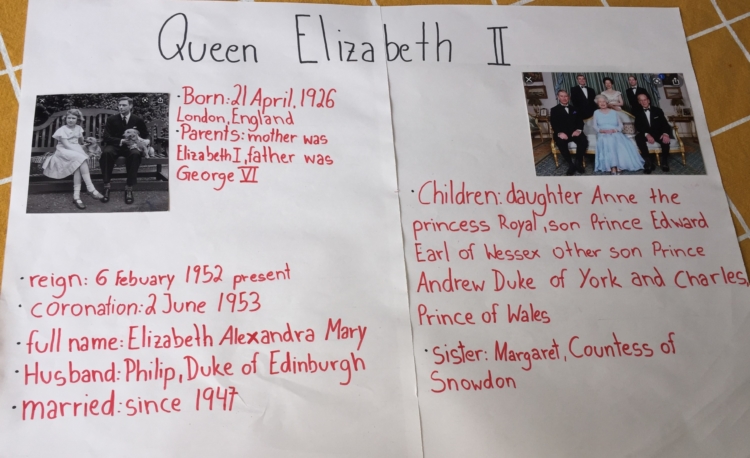 Queen Elizabeth II
·Born:21 April, 1926
London, England
·Parents: mother was
Elizabeth I, father was
George VI
·reign: 6 Febuary 1952 present
·coronation:2 June 1953
·full name: Elizabeth Alexandra Mary
·Husband: Philip, Duke of Edinburgh
·married: since 1947
·Children: daughter Anne the
princess Royal, son Prince Edward
Earl of Wessex other son Prince
Andrew Duke of York and Charles,
Prince of Wales
·sister: Margaret, Countess of
Snowdon